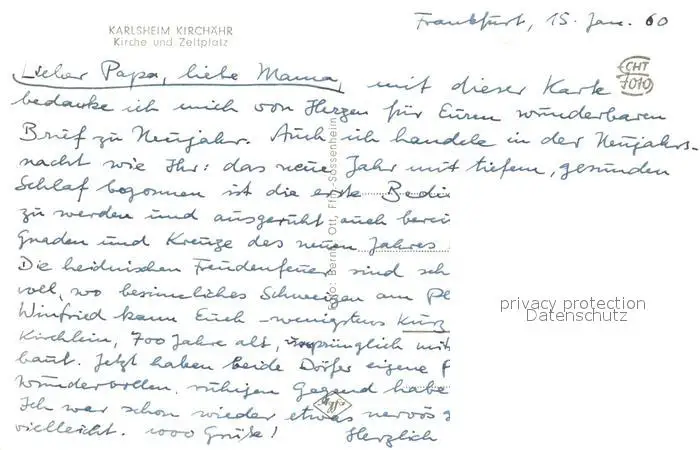 Frankfurt, 15. Jan. 60
KARLSHEIM KIRCHÄHR
Kirche und Zeltplatz
Lieber Papa, liebe Mama, mit dieser Karte
CHT
7010
bedanke ich mich von Herzen für Euren wunderbaren
Brief zu Neujahr. Auch ich handele in der Neujahrs-
nacht wie Ihr: das neue Jahr mit tiefem, gesunden
Schlaf begonnen ist die erste Bedi
zu werden und ausgeruht auch berei
Gnaden und Kreuze des neuen Jahres
Die heidnischen Freudenfeuer sind sch
voll, wo besinnliches Schweigen am Pl
Winfried kann Euch wenigstens kurz
Kirchlein, 700 Jahre alt, ursprünglich mit
baut. Jetzt haben beide Dörfer eigene P
wundervollen, ruhigen Gegend habe
Ich war schon wieder etwas nervös
vielleicht. 1000 Grüße! Herzlich
Foto: Bernh. Ott, Ffm.-Sossenheim
Agfa
privacy protection
Datenschutz